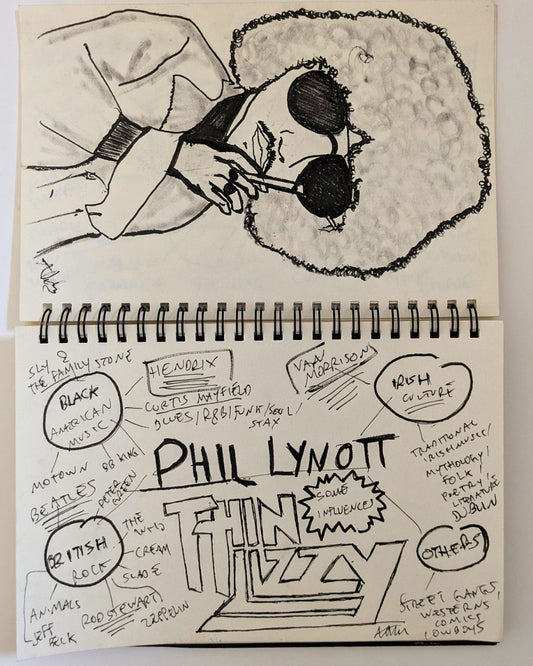 SLY &
THE FAMILY STONE
BLACK
AMERICAN
MUSIC
HENDRIX
CURTIS MAYFIELD
BLUES/R&B/FUNK/SOUL/
STAX
BB KING
MOTOWN
VAN
MORRISON
IRISH
CULTURE
TRADITIONAL
IRISH MUSIC/
MYTHOLOGY/
FOLK/
POETRY &
LITERATURE
DUBLIN
PHIL LYNOTT
THIN
LIZZY
SOME
INFLUENCES
BEATLES
PETER
GREEN
BRITISH
ROCK
THE WHO
CREAM
SLADE
ROD STEWART/
ZEPPELIN
ANIMALS
JEFF
BECK
OTHERS
STREET GANGS,
WESTERNS,
COMICS
COWBOYS